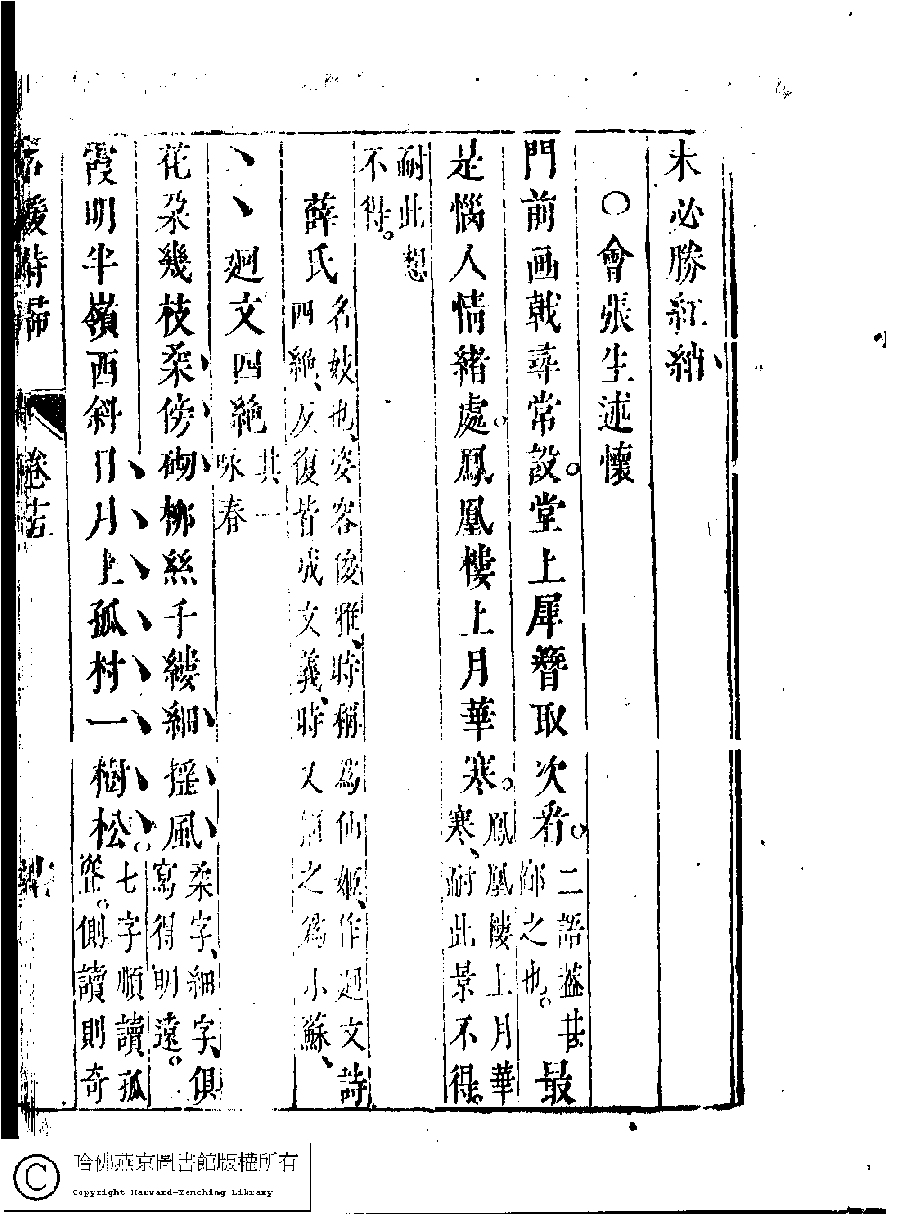 未必勝紅綃
○會張生述懷
門前画戟尋常設。堂上犀簪取次看。二語蓋甚鄙之也。最
是惱人情緒處。鳳凰樓上月華寒。鳳凰樓上月華寒、耐此景不得、
耐此愁不得。
薛氏 名妓也、姿容俊雅、時稱為仙姬、作廻文詩四絶、反復皆成文義、時人謂之為小蘇、
廻文四絶 其一 咏春
花朶幾枝柔傍砌柳絲千縷細揺風 柔字、細字、俱寫得明遠。
霞明半嶺西斜日月上孤村一樹松 七字順讀孤峭。側讀則奇
名媛詩歸 卷
哈佛燕京圖書館版權所有
Copyright Harvard-Yenching Library